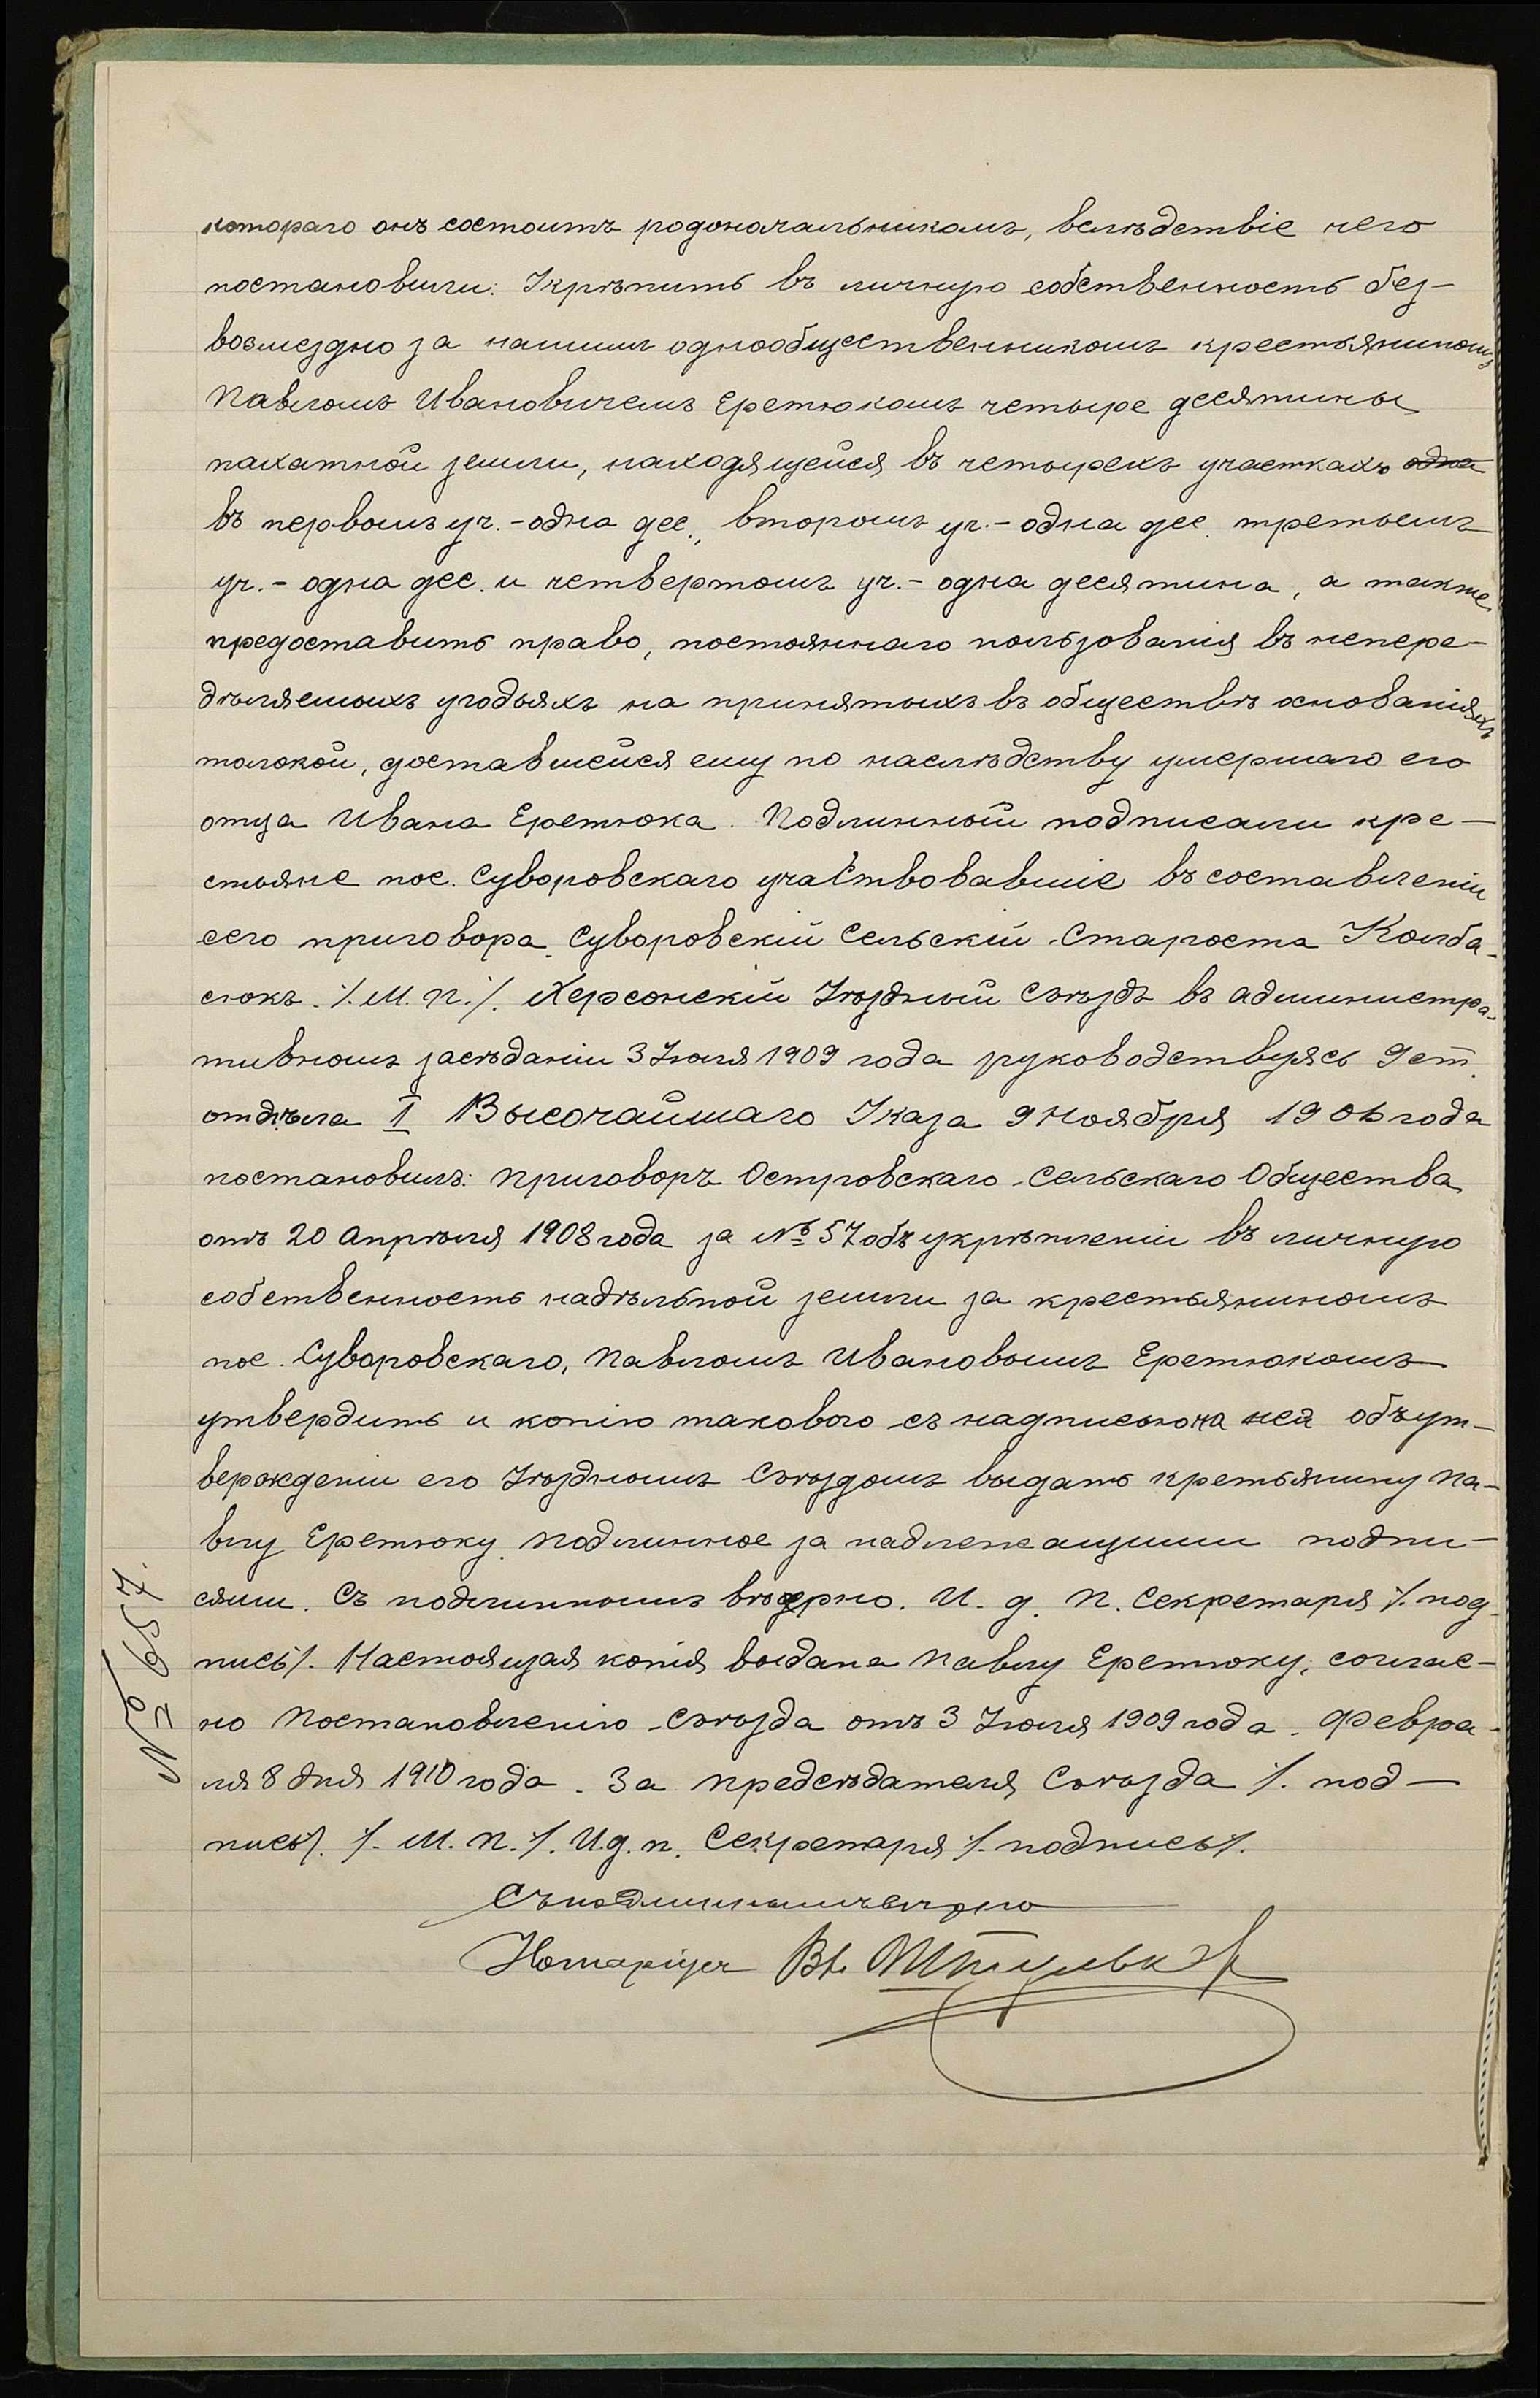 котораго онъ состоитъ родоначальникомъ, вслѣдствіе чего
постановили: Укрѣпить въ личную собственность без-
возмездно за нашимъ однообщественникомъ крестьяниномъ
Павломъ Ивановичемъ Еретюкомъ четыре десятины
пахатной земли, находящейся въ четырехъ участкахъ одна
въ первомъ уч.-одна дес., второмъ уч.-одна дес. третьемъ
уч.-одна дес. и четвертомъ уч.-одна десятина, а также
предоставить право, постояннаго пользованія въ непере-
дѣляемыхъ угодьяхъ на принятыхъ въ обществѣ основаніяхъ
толокой, доставшейся ему по наслѣдству умершаго его
отца Ивана Еретюка. Подлинный подписали кре-
стьяне пос. Суворовскаго участвовавшіе въ составленіи
сего приговора. Суворовскій Сельскій Староста Колба-
сюкъ. /. М. П. /. Херсонскій Уѣздный Съѣздъ въ администра-
тивномъ засѣданіи 3 Іюля 1909 года руководствуясь 9 ст.
отдѣла I Высочайшаго Указа 9 Ноября 1906 года
постановилъ: приговоръ Островскаго Сельскаго Общества
отъ 20 Апрѣля 1908 года за № 57 объ укрѣпленіи въ личную
собственность надѣльной земли за крестьяниномъ
пос. Суворовскаго, Павломъ Ивановымъ Еретюкомъ
утвердить и копію такового съ надписью на ней объ ут-
вержденіи его Уѣзднымъ Съѣздомъ выдать кретьянину Па-
влу Еретюку. Подлинное за надлежащими подпи-
сями. Съ подлиннымъ вѣрно. И. д. П. Секретаря /. под-
пись /. Настоящая копія выдана Павлу Еретюку, соглас-
но Постановленію Съѣзда отъ 3 Іюля 1909 года. Февра-
ля 8 дня 1910 года. За предсѣдателя Съѣзда /. под-
пись /. /. М. П. /. И. д. п. Секретаря /. подпись /.
Съ подлиннымъ вѣрно
Нотаріусъ Вл.
№ 657.